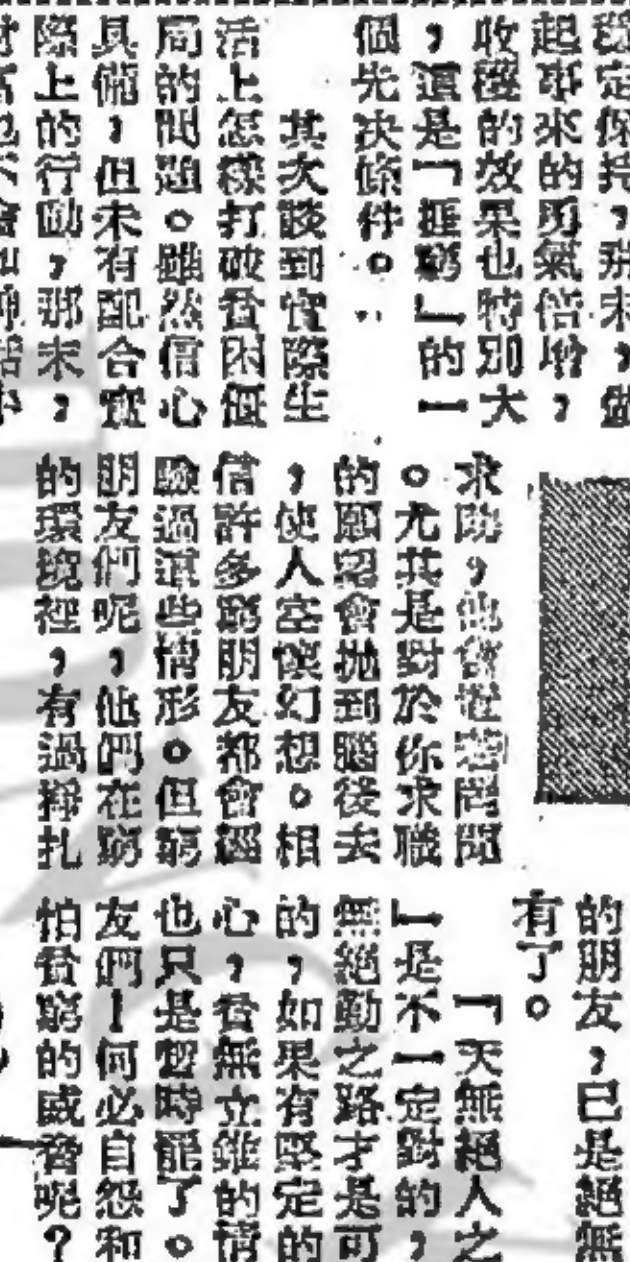 定保持，那末，做
起事來的勇氣倍增，
收穫的效果也特別大
，這是「捱窮」的一
個先決條件。
其次談到實際生
活上怎樣打破貧困僵
局的問題。雖然信心
具備，但未有配合實
際上的行動，那末，
也不會如神話中
求晩，他會裝若罔聞
。尤其是對於你求職
的願望會拋到腦後去
，使人空懷幻想。相
信許多窮朋友都會經
驗過這些情形。但窮
朋友們呢，他們在窮
的環境裡，有過掙扎
的朋友，已是絕無
有了。
「天無絕人之
」是不一定對的，
無絕勤之路才是可
的，如果有堅定的
心，貧無立錐的情
也只是暫時罷了。
友們！何必自怨和
怕貧窮的威脅呢？